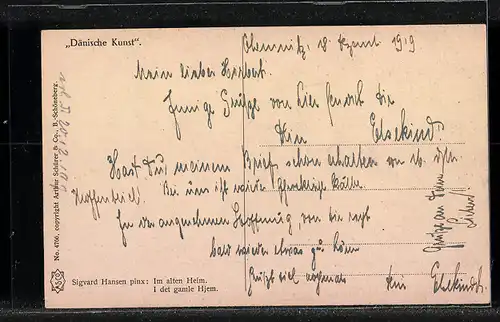 „Dänische Kunst“.
Chemnitz, 18. Dezemb. 1919
Mein lieber Herbert.
Innige Grüße von hier sendet die
Dein Elsekind.
Hast Du meinen Brief schon erhalten von 16. ds.
Hoffentlich! Bei uns ist wieder schreckliche Kälte.
In der angenehmen Hoffnung, von Dir recht
bald wieder etwas zu hören
Grüßt viel nochmals Dein Elsekind.
Grüße an Deine
No. 4116. copyright Arthur Schürer & Co., B.-Schöneberg
Sigvard Hansen pinx: Im alten Heim.
I det gamle Hjem.